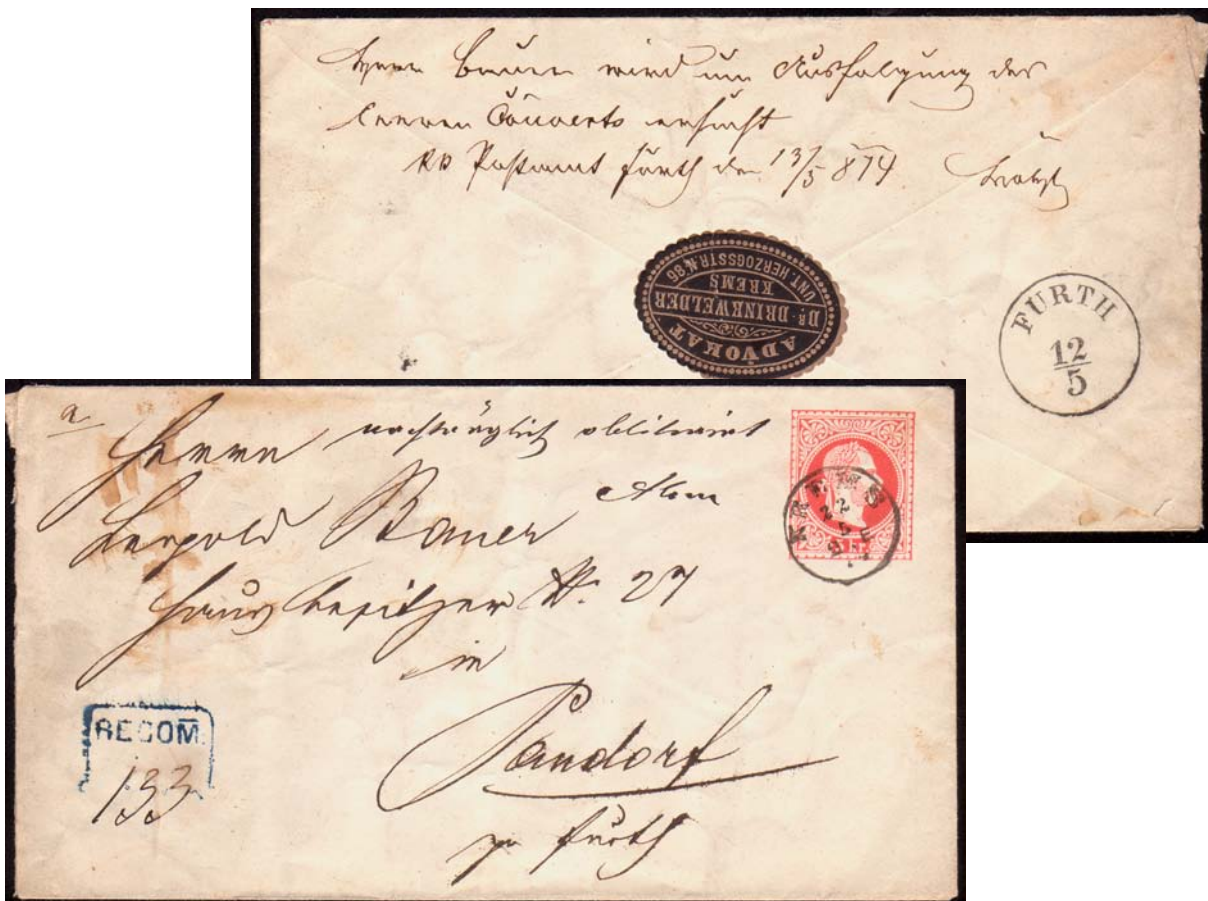 Herrn Bauer wird um Ausfolgung des
leeren Couverts ersucht
KK Postamt Furth den 13/5 874
ADVOKAT
DR. DRINKWELDER
KREMS
UNT. HERZOGSSTR. N 86
FURTH
12
5
a
nachträglich oblitterirt
Herrn
Leopold Bauer
Hausbesitzer N. 27
in
Paudorf
pr Furth
KREMS
22
5
RECOM.
133